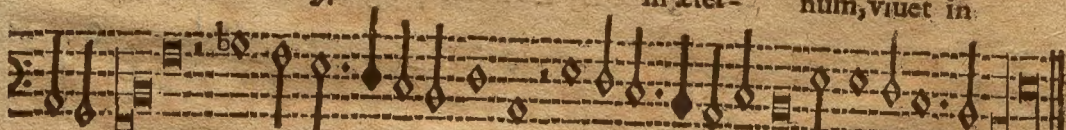 in æter- num, viuet in